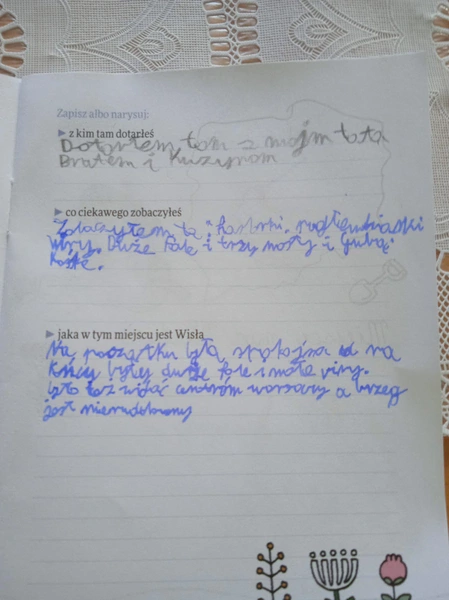 Zapisz albo narysuj:
▶ z kim tam dotarłeś
Dotarłem tam z mojm tatą
Bratem i Kuzynom
▶ co ciekawego zobaczyłeś
Zobaczyłem ta
wiry. Duże Fale i trzy mosty i grubą
▶ jaka w tym miejscu jest Wisła
Na początku była spokojna a na
końcu były duże fale i małe viry.
było też widać centrum warszawy a brzeg
jest nierozdobiony